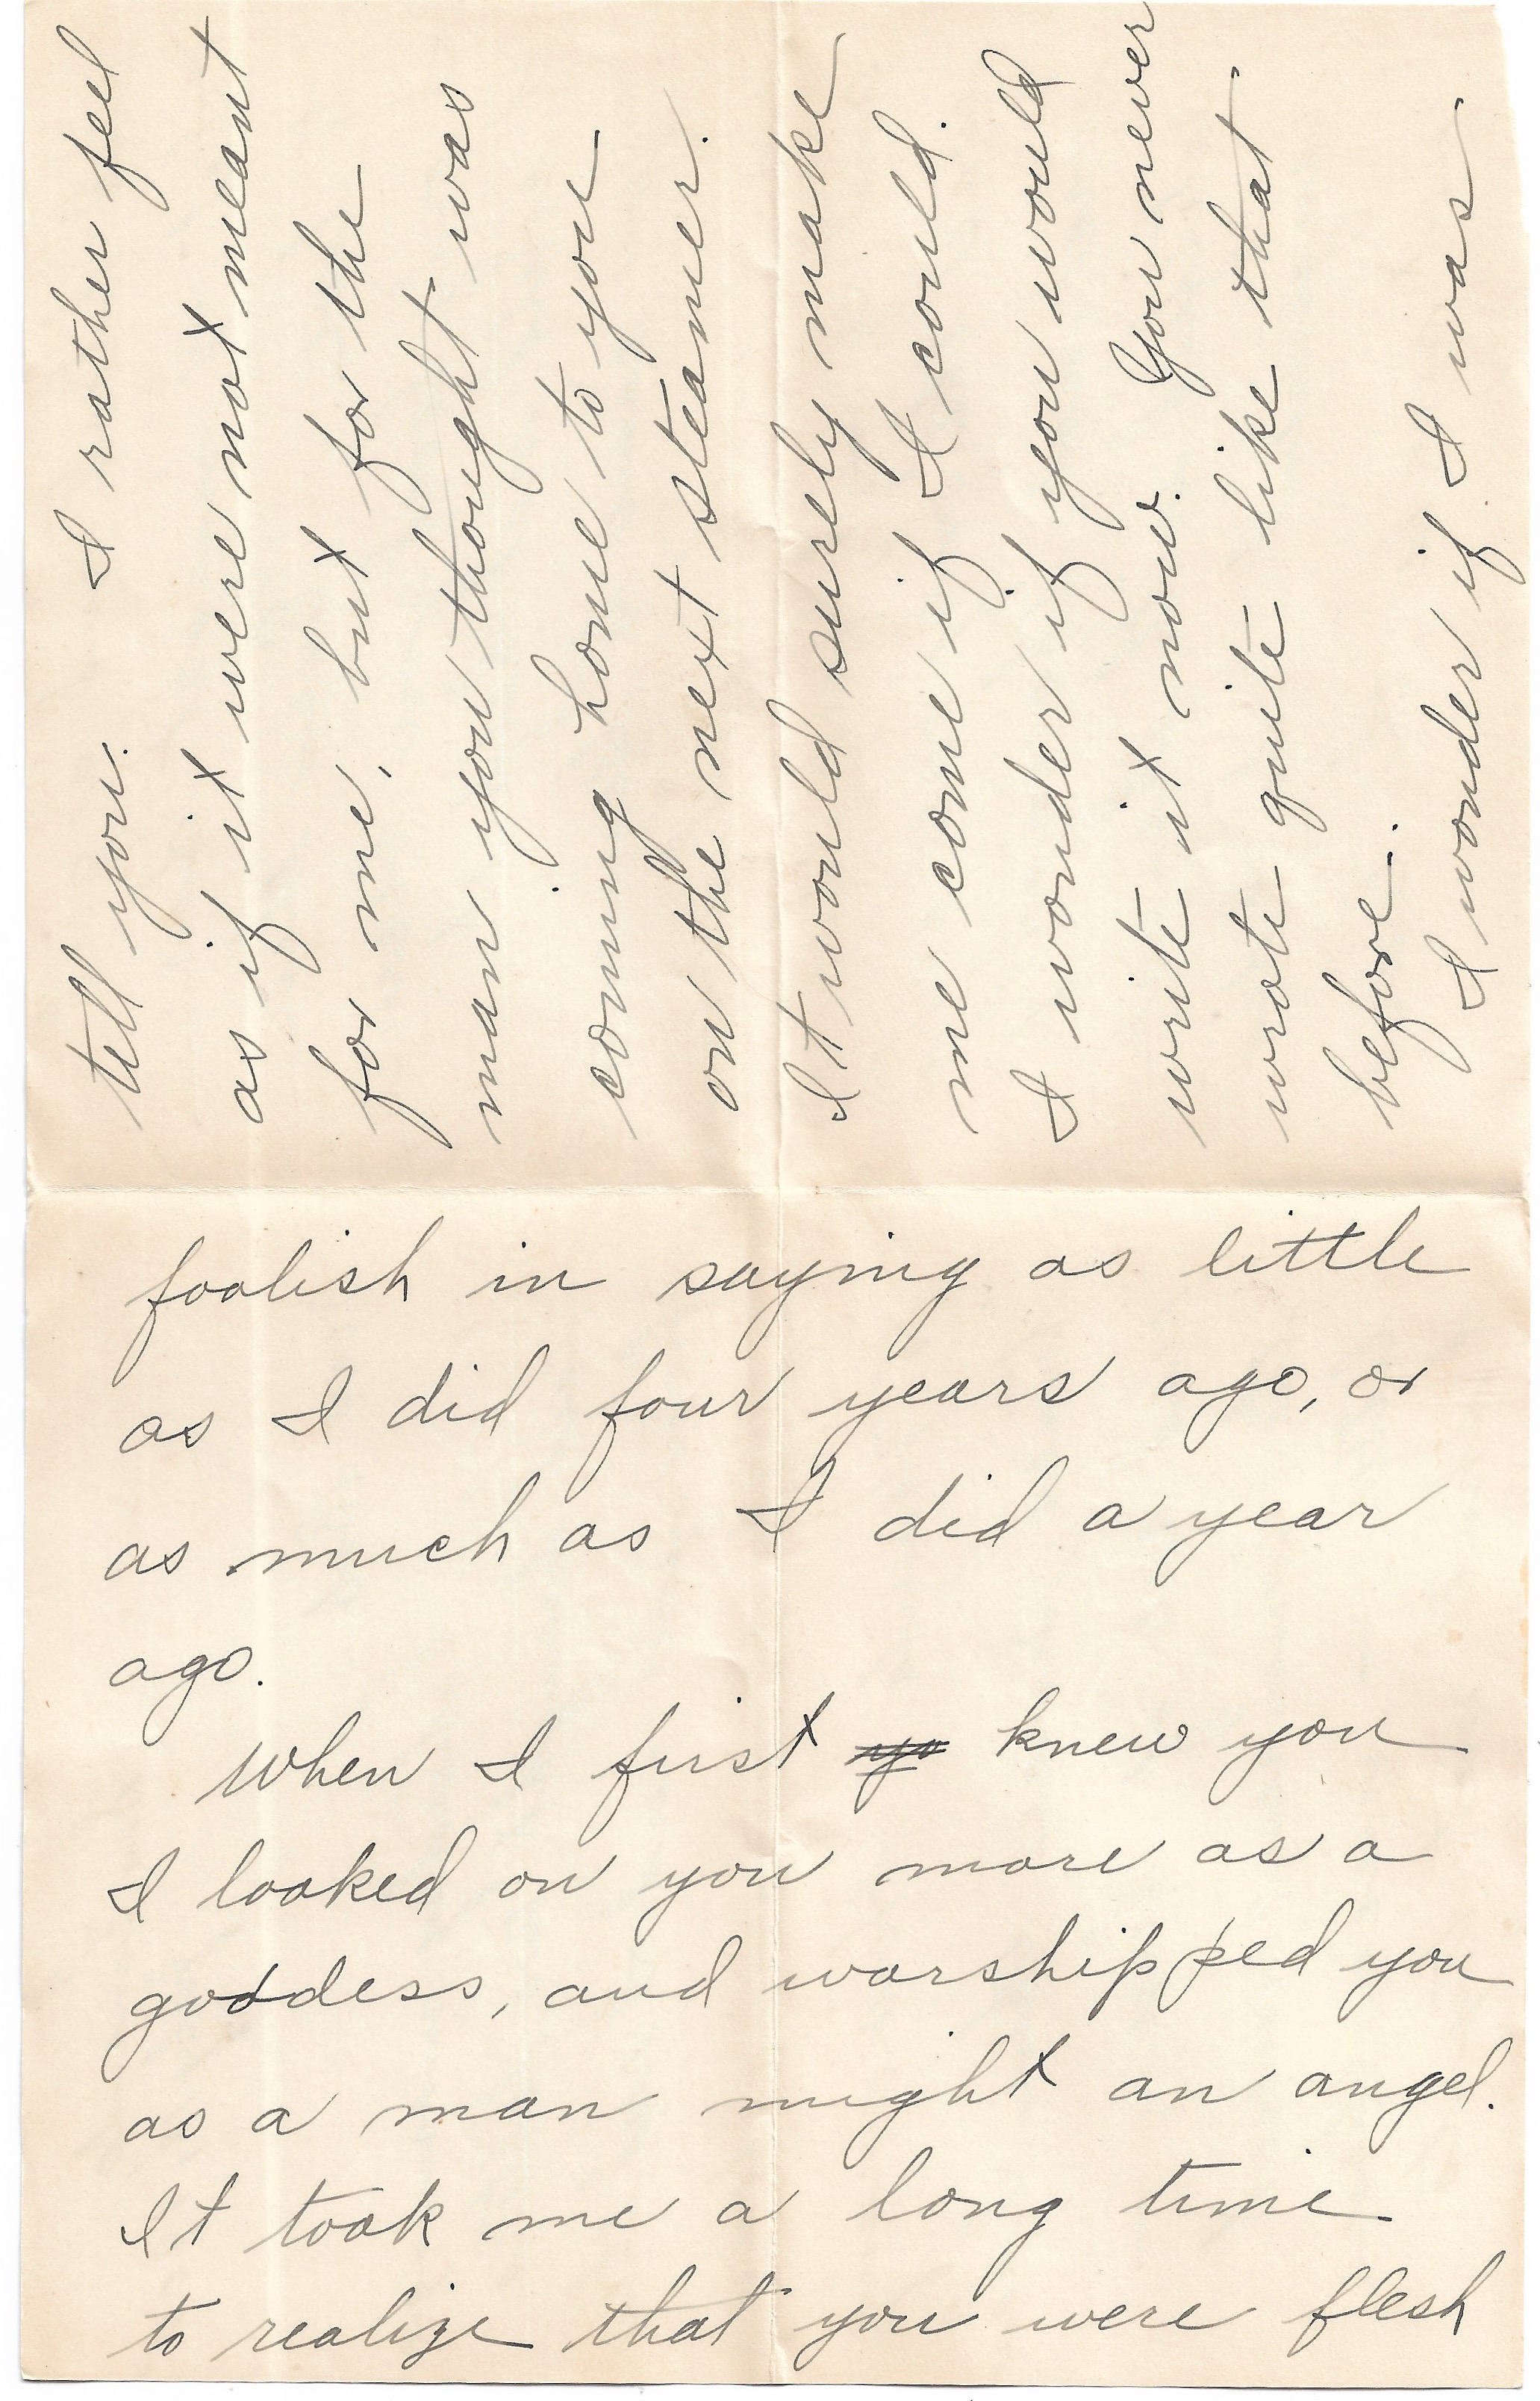 tell you. I rather feel
as if it were not meant
for me, but for the
man you thought was
coming home to you
on the next steamer.
It would surely make
me come if I could.
I wonder if you would
write it now. You never
wrote quite like that
before.
I wonder if I was
foolish in saying as little
as I did four years ago, or
as much as I did a year
ago.
When I first yo knew you
I looked on you more as a
goddess, and worshipped you
as a man might an angel.
It took me a long time
to realize that you were flesh